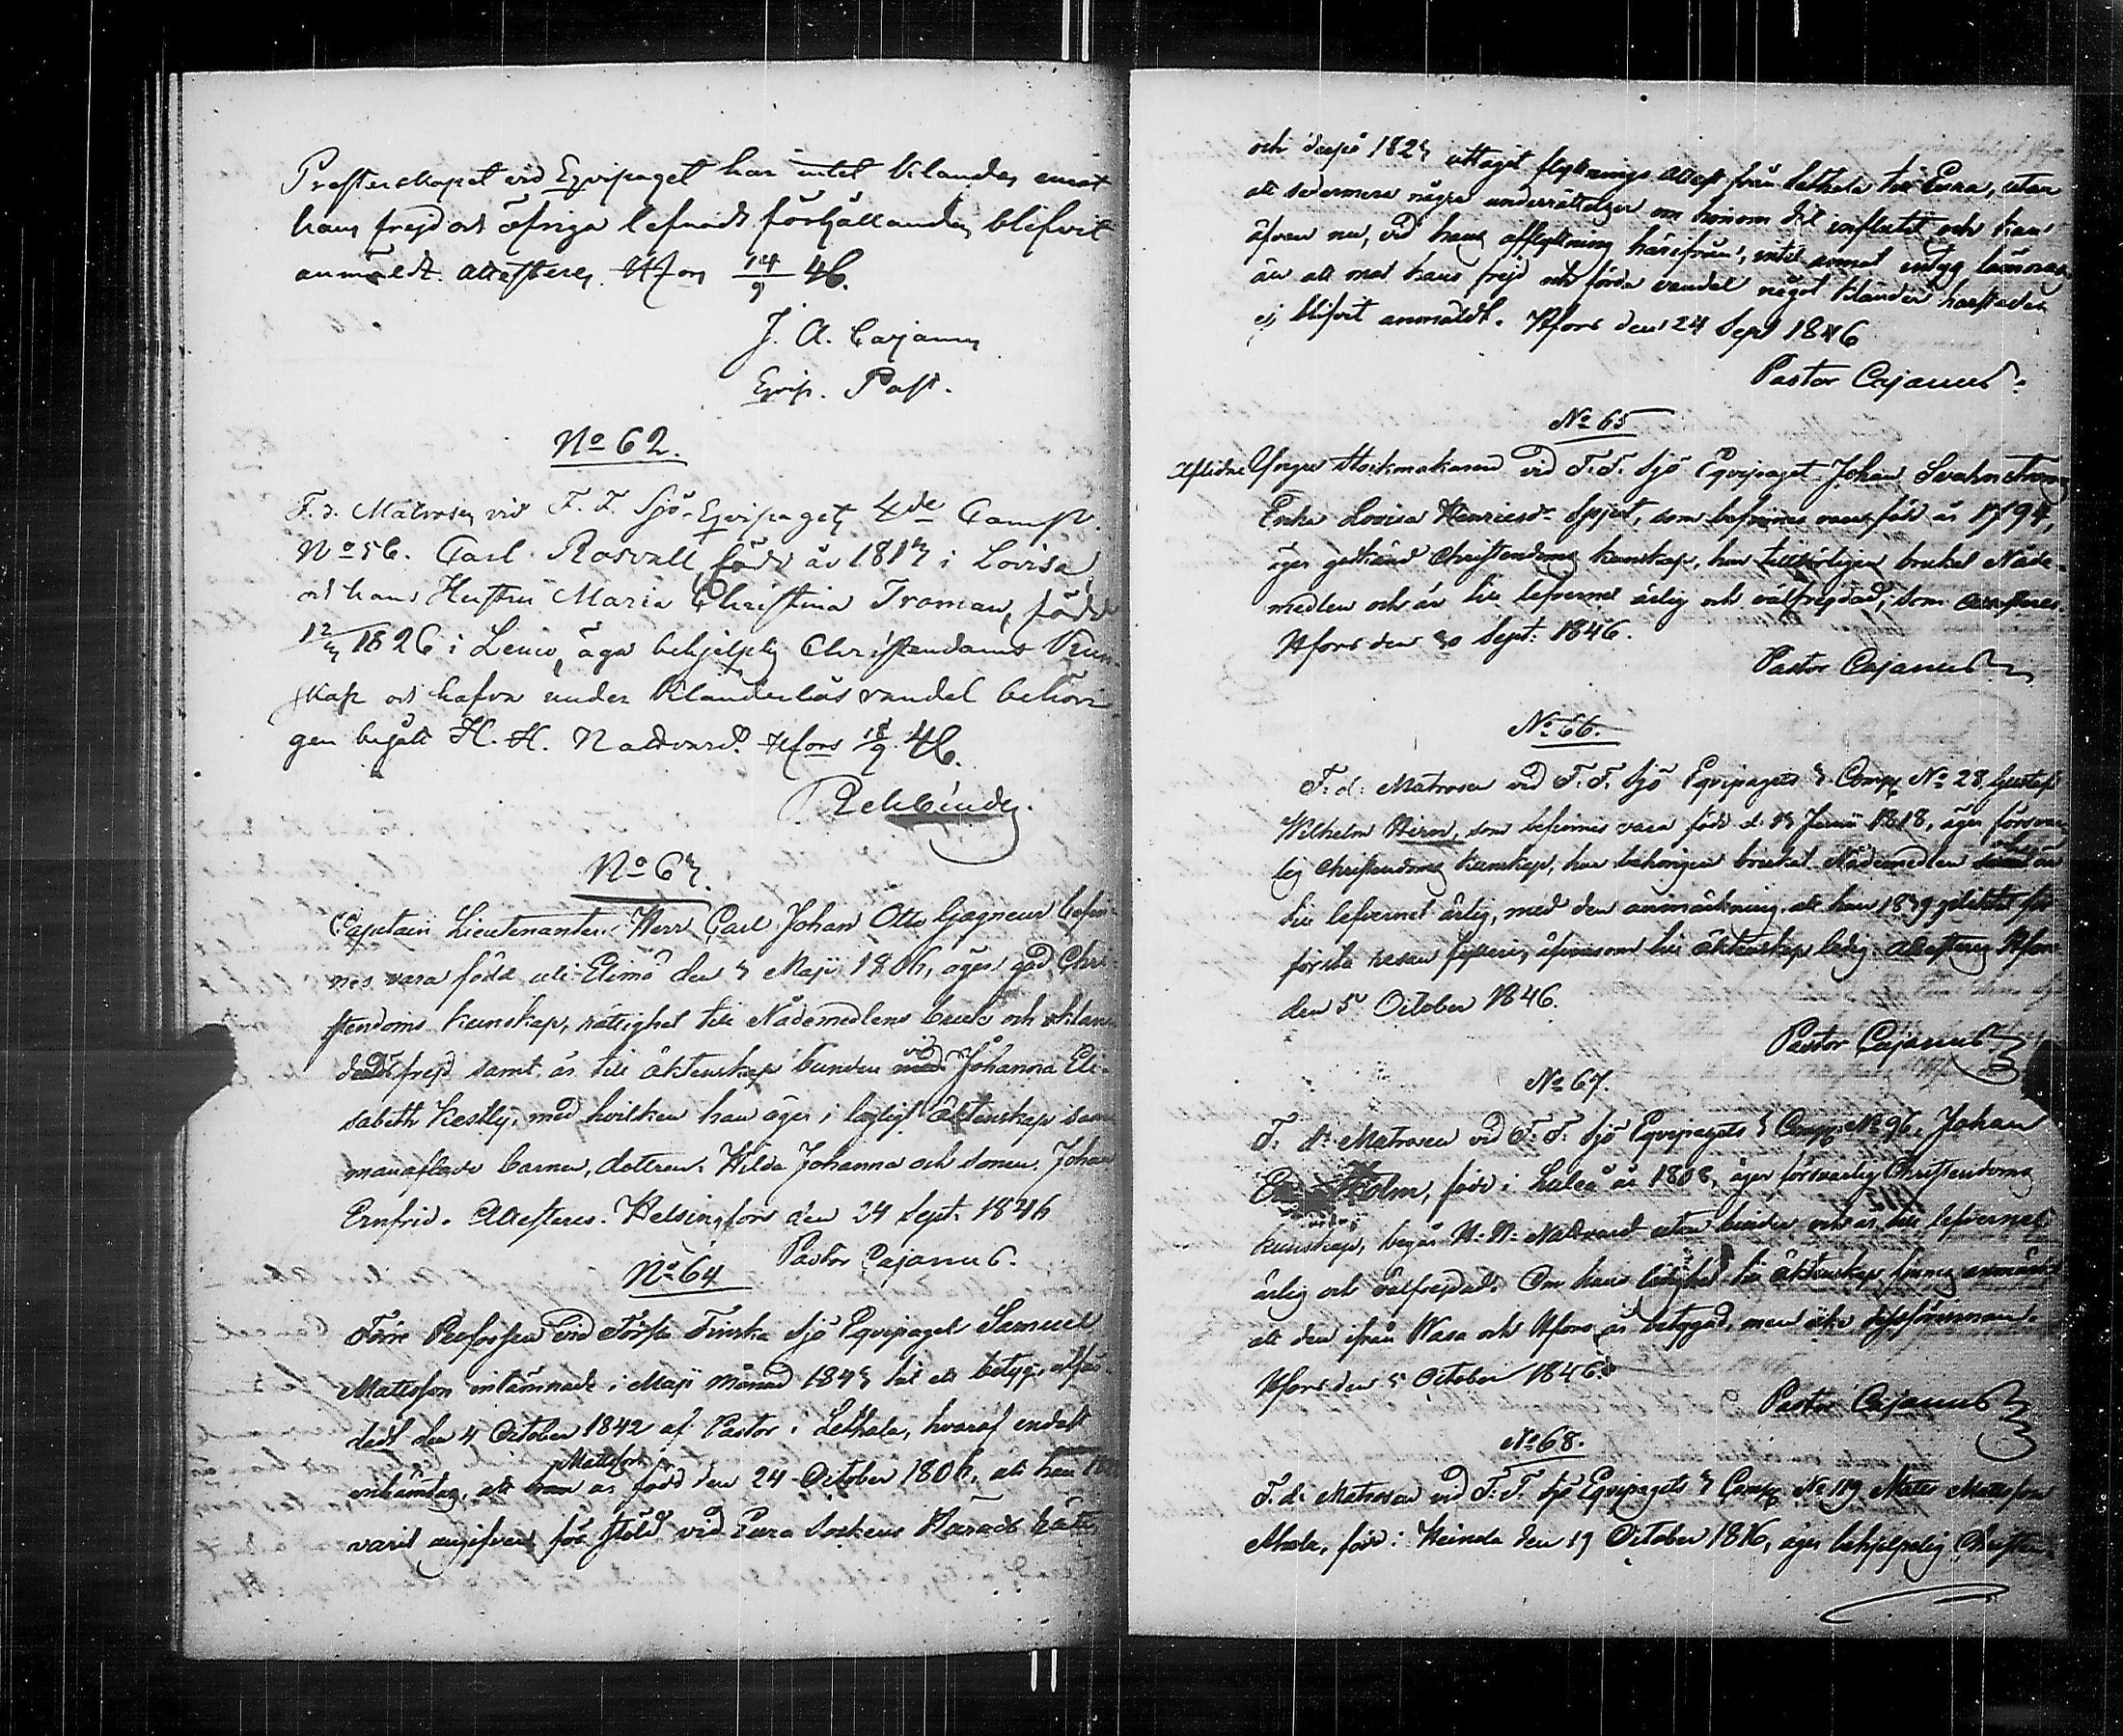 Presterskapet vid Eqvipaget har intet klander emot
hans frejd och öfriga lefnads förhållanden blifvit
anmäldt. Attesteres. Hfors 14/9 46.
J. A. Cajanus
Eqvip. Past.
No 62.
F. d. Matrosen vid F. F. Sjö-Eqvipagets 4de Comp.
No 56. Carl Rosvall, född år 1813 i Lovisa
och hans Hustru Maria Christina Troman, född
12/3 1826 i Lemo, äga behjelplig Christendoms Kun-
skap och hafva under klanderlös vandel behöri-
gen begått H. H. Nattvard. Hfors 18/9 46.
Rehbinder.
No 63.
Captain Lieutenanten Herr Carl Johan Otto Gagneur befin-
nes vara född uti Elimä den 3 Maji 1806, äger god Chri-
stendoms kunskap, rättighet till Nådemedlens bruk och oklan-
derlig frejd samt är till äktenskap bunden vid Johanna Eli-
sabeth Kestly, med hvilken han äger i lagligt äktenskap sam-
manaflade barnen, dottren Hilda Johanna och sonen Johan
Ernfrid. Attesteres. Helsingfors den 24 Sept. 1846
Pastor Cajanus.
No 64
Förre Profossen vid Första Finska Sjö Eqvipaget Samuel
Mattsson inlämnade i Maji månad 1843 hit ett betyg, utfär-
dadt den 4 October 1842 af Pastor i Lethala, hvaraf endast
inhämtas, att Mattsson är född den 24 October 1806, att han
varit angifven för stöld vid Eura Sockens Härads Rätt
och derpå 1823 uttagit flyttnings attest från Lethala till Eura, utan
att sedermera några underrättelser om honom dit influtit och kan
äfven nu, vid hans afflyttning härifrån, intet annat intyg lämnas
än att mot hans frejd och förda vandel något klander härstädes
ej blifvit anmäldt. Hfors den 24 Sept 1846
Pastor Cajanus.
No 65
Aflidne Yngre Stockmakaren vid F. F. Sjö Eqvipaget Johan Svahnströms
Enka Lovisa Henricsdr Spjut, som befinnes vara född år 1794,
äger godkänd Christendoms kunskap, har tillbörligen brukat Nåde-
medlen och är till lefvernet ärlig och välfrejdad, som attesteres.
Hfors den 30 Sept. 1846.
Pastor Cajanus
No 66.
F. d. Matrosen vid F. F. Sjö Eqvipagets 3 Comp. No 28 Gustaf
Wilhelm Hirn, som befinnes vara född d. 13 Junii 1818, äger försvar-
lig Christendoms kunskap, har behörigen brukat Nådemedlen samt är
till lefvernet ärlig, med den anmärkning att han 1839 pliktat för
första resan fylleri, äfvensom till äktenskap ledig. Attesteres Hfors
den 5 October 1846.
Pastor Cajanus
No 67.
F. d. Matrosen vid F. F. Sjö Eqvipagets 3 Comp. No 96, Johan
Holm, född i Luleå år 1808, äger försvarlig Christendoms
kunskap, begår H. H. Nattvard utan hinder och är till lefvernet
ärlig och välfrejdad. Om hans ledighet till äktenskap finnes anmärkt
att den ifrån Wasa och Hfors är betygad, men icke dessförinnan.
Hfors den 5 October 1846.
Pastor Cajanus
No 68.
F. d. Matrosen vid F. F. Sjö Eqvipagets 3 Comp. No 119 Matts Mattsson
född i Heinola den 19 October 1816, äger behjelpelig Christen-